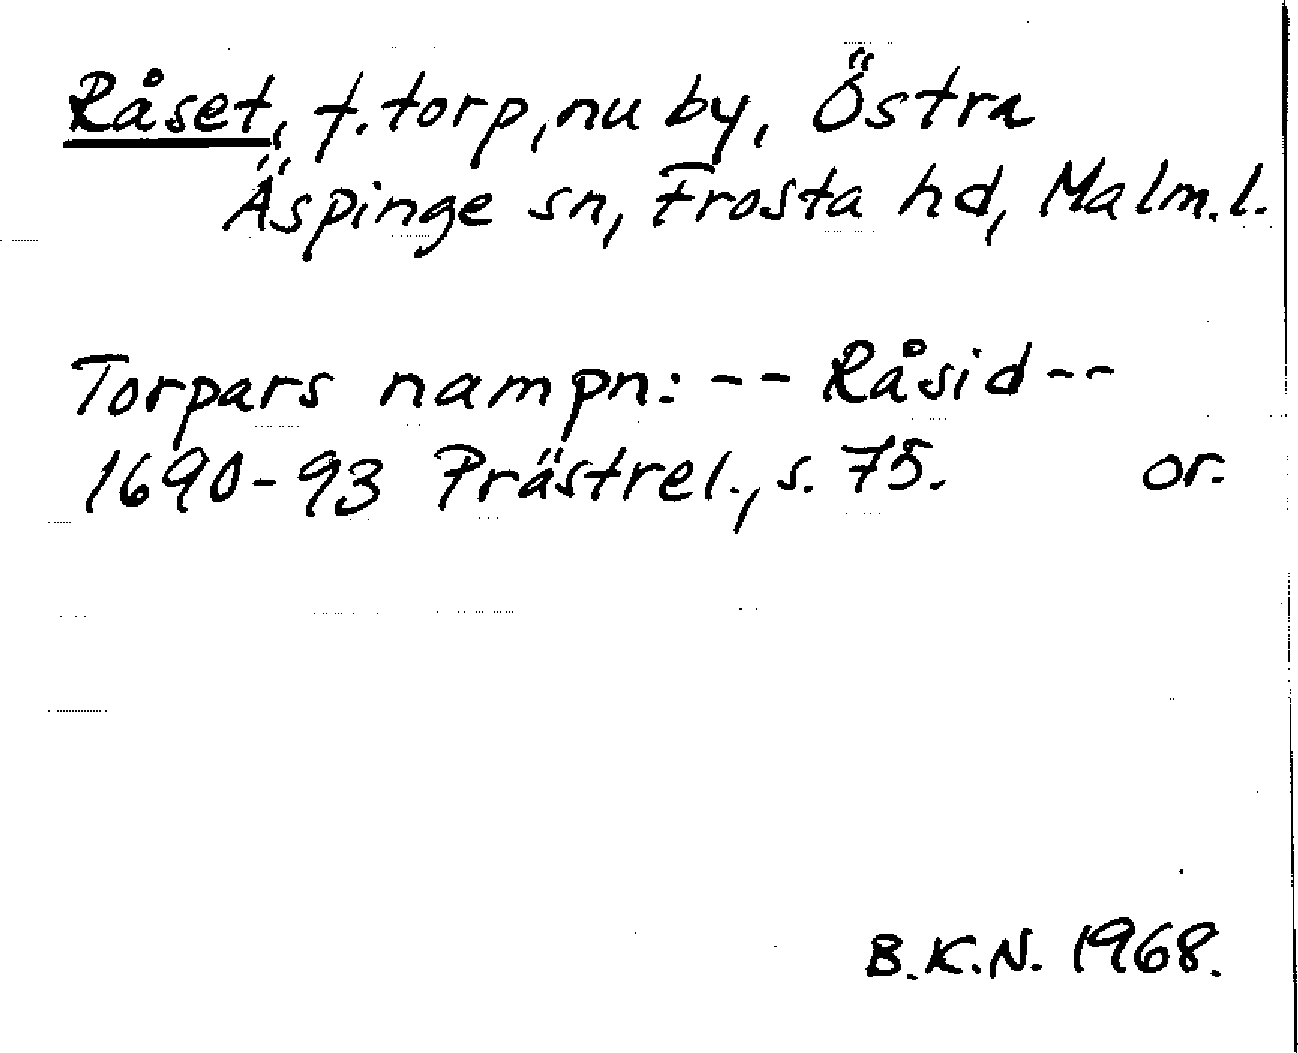 Råset, f. torp, nu by, Östra
Äspinge sn, Frosta hd, Malm. l.
Torpars nampn: -- Råsid --
1690-93 Prästrel., s. 75. or.
B.K.N. 1968.